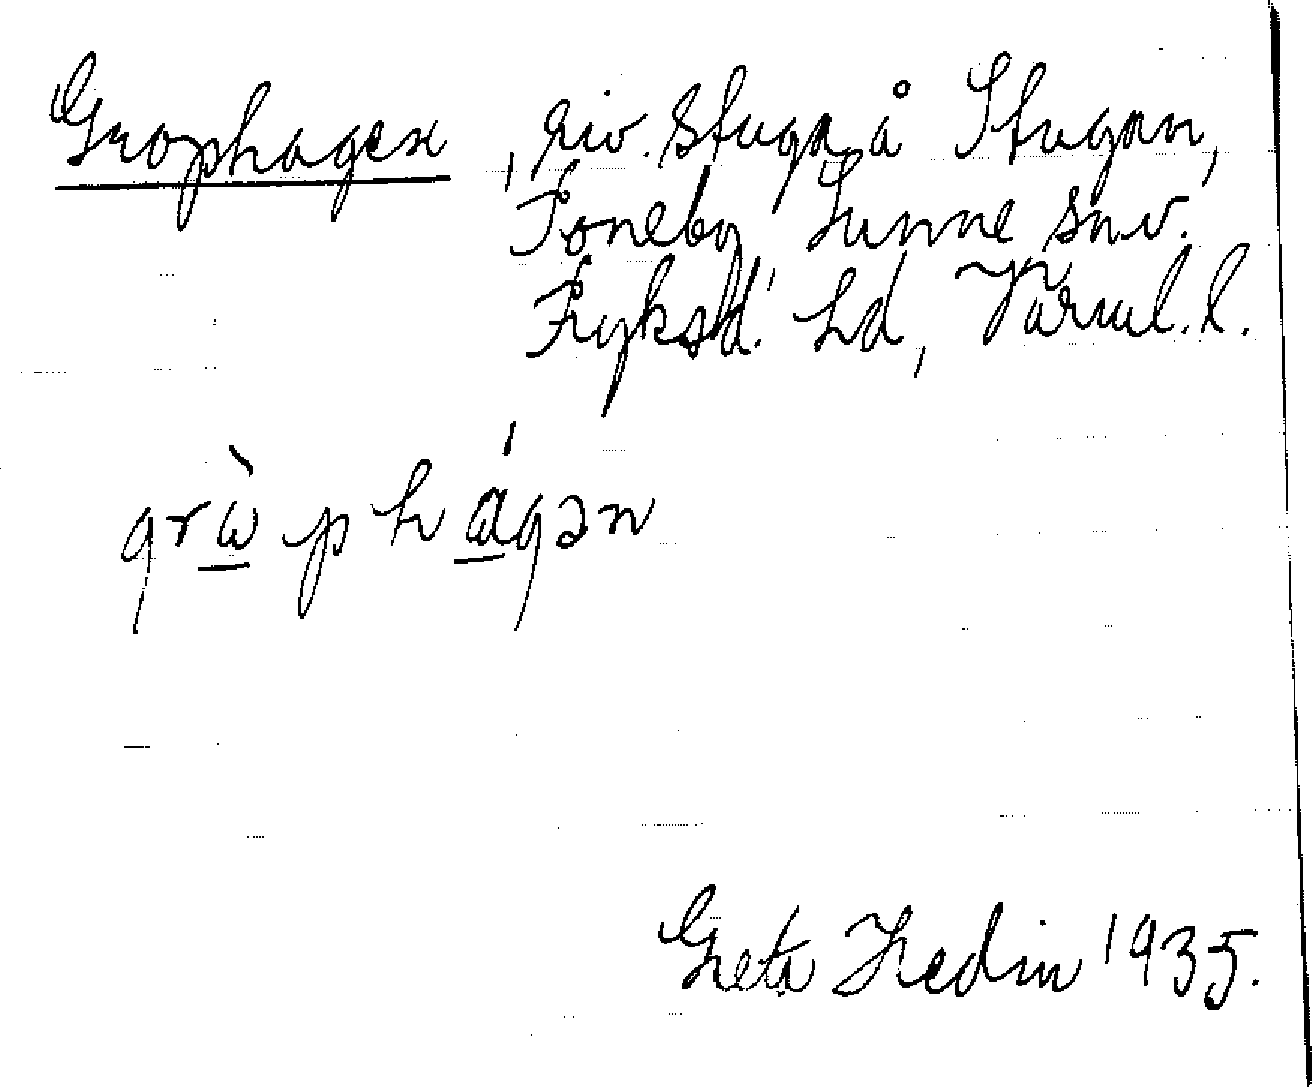 Grophagen, riv. stuga å Stugan,
Toneby Sunne sn.v.
Fryksd. hd, Värml. l.
grὼphágən
Greta Hedin 1935.